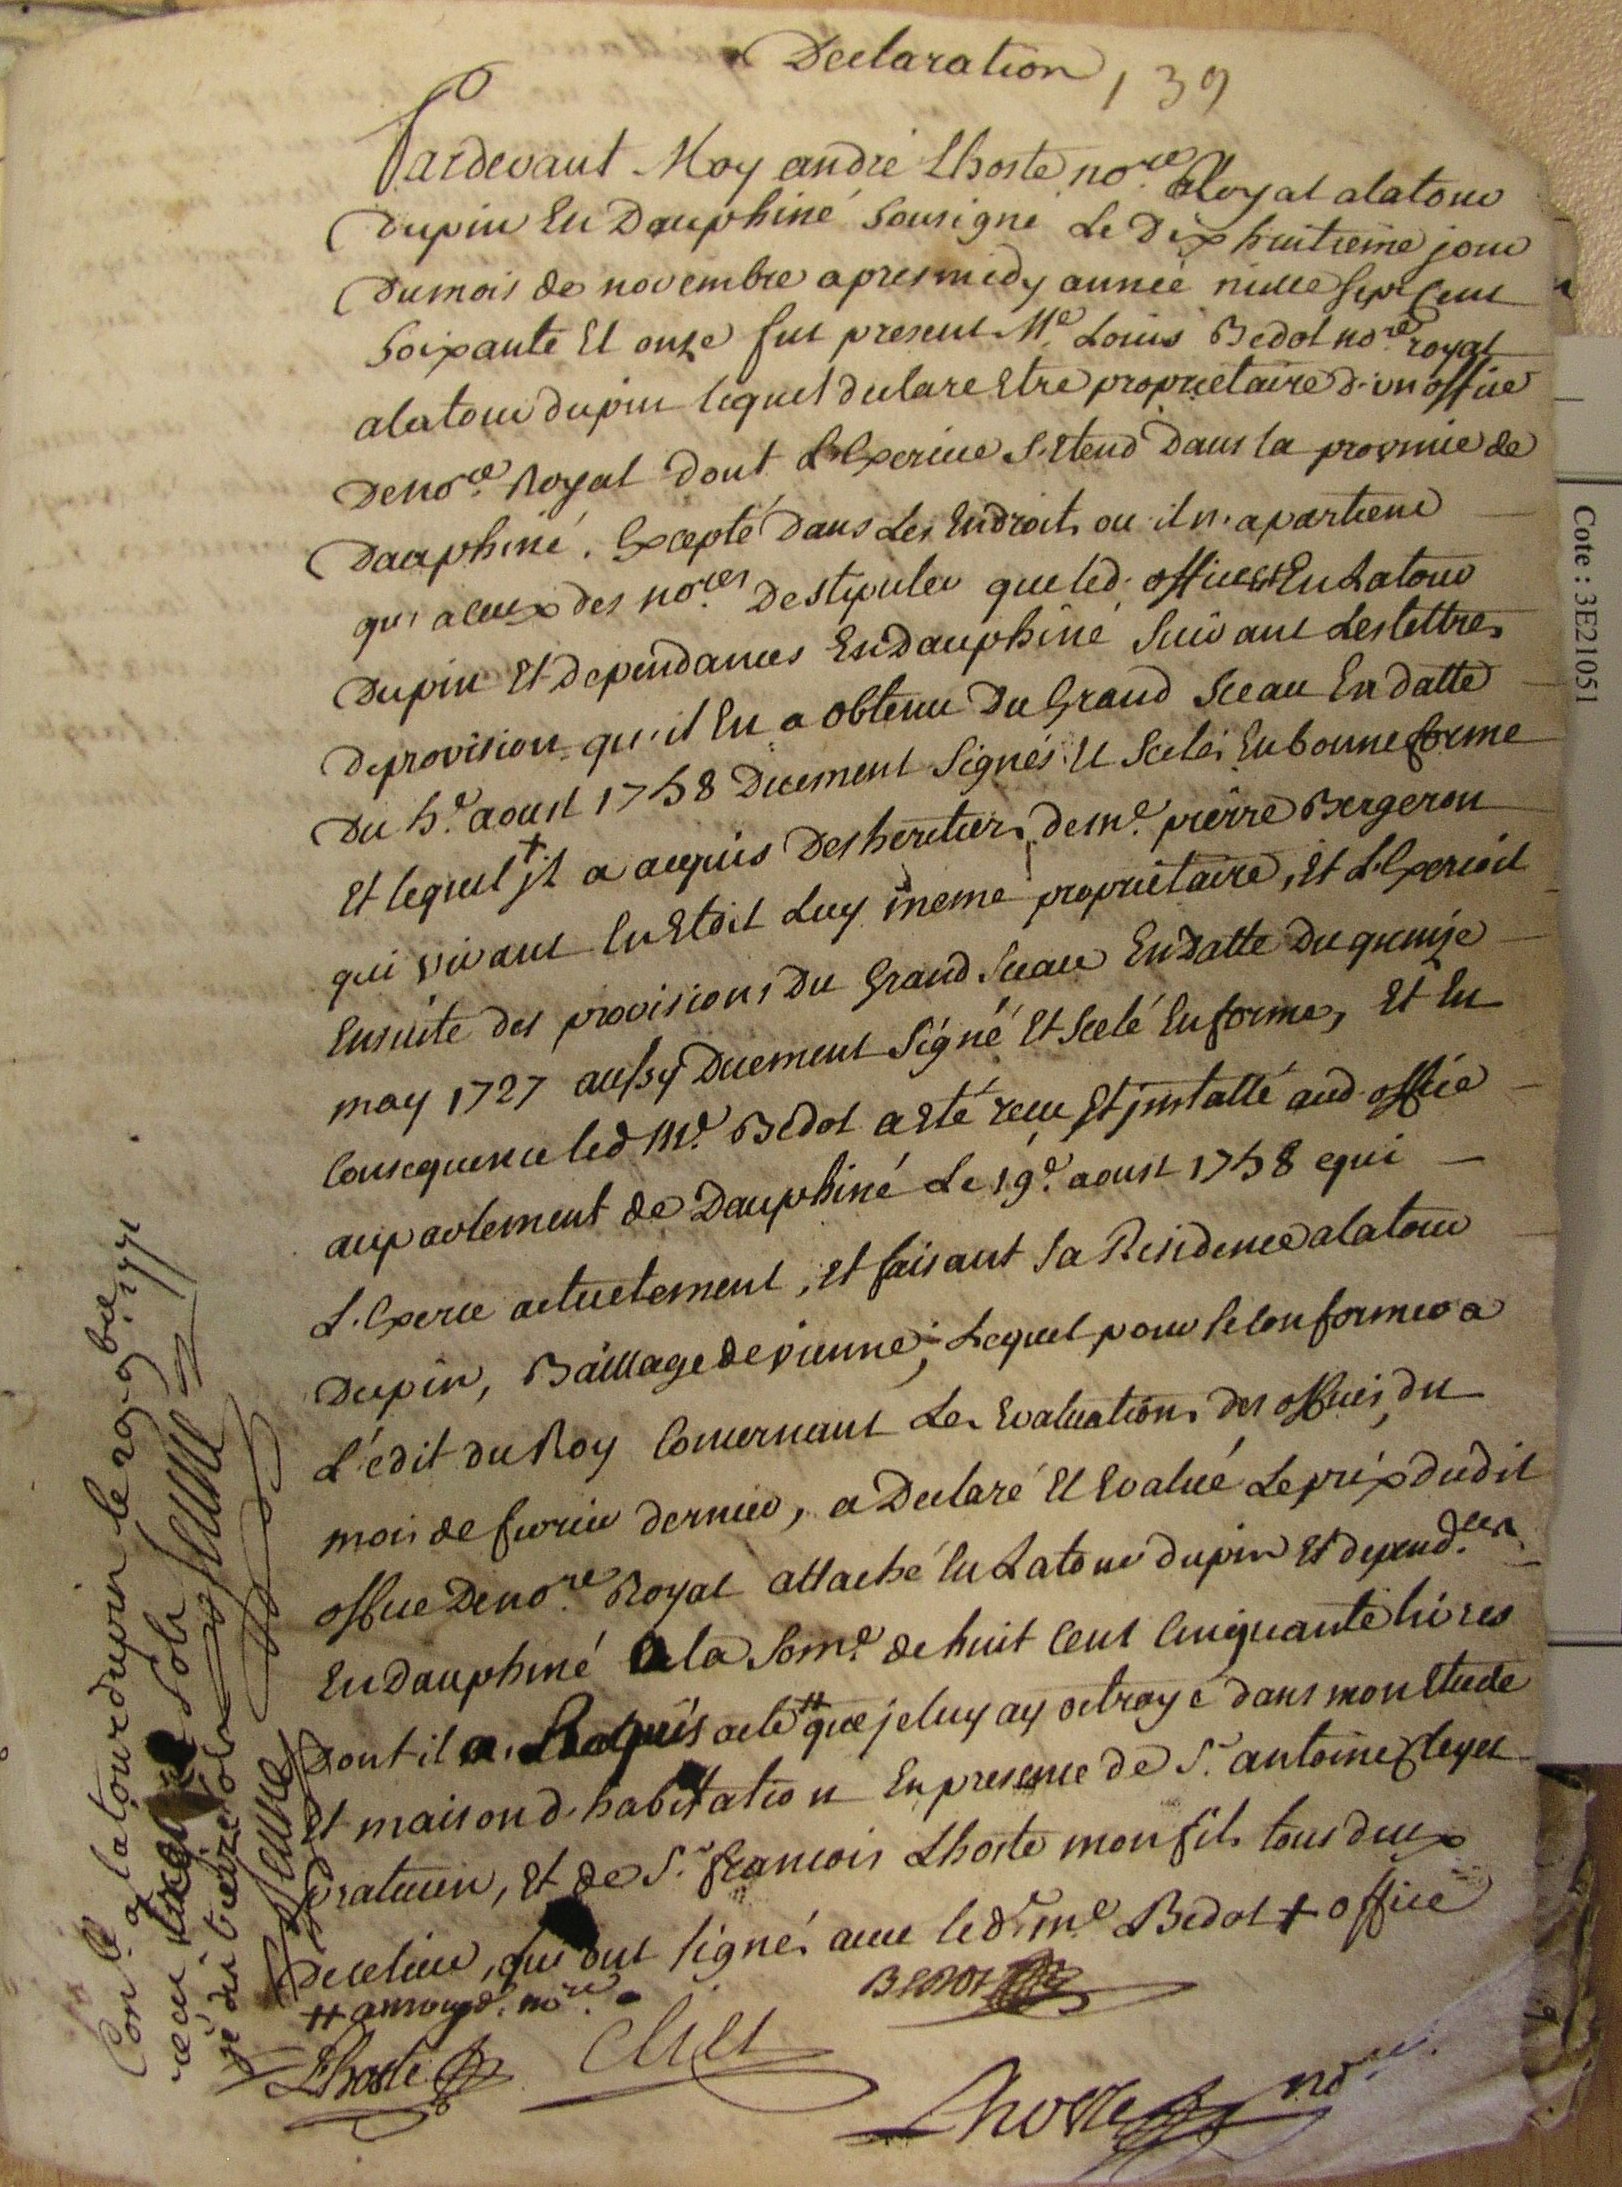 Declaration 139
Pardevant Moy andré Lhoste no.re Royal alatour
Dupin En Dauphiné Sousigné Le Dixhuitieme jour
Dumois de novembre apresmidy année mille Sept Cent
Soixante Et onze fut present Me. Louis Bedot no.re royal
alatour dupin lequel declare Etre proprietaire d'un office
Deno.re Royal Dont L'Exercice S'Etend Dans la province de
Dauphiné. Excepté Dans Les Endroits ou il n'apartient
qu'aceux des no.res De stipuler que led. office Est En Latour
Dupin Et Dependances En Dauphiné Suivant Les lettres
De provision qu'il En a obtenu Du Grand Sceau En datte
Du 5e. aoust 1758 Duement Signés Et Scelés En bonne forme
Et lequel + jl a acquis Des heritiers de me. pierre Bergeron
qui vivant En Etoit Luy meme proprietaire, Et L'Exercoit
Ensuite des provisions Du Grand Sceau En Datte Du quinze
may 1727 aussy Duement Signé Et Scelé En forme, Et En
Consequence led Me. Bedot a Eté recu Et jnstallé aud. office
auparlement de Dauphiné Le 19e. aoust 1758 equi
L'Exerce actuelement, Et faisant Sa Residence alatour
Dupin, Bailliage de vienne; Lequel pour Se Conformer a
L'édit du Roy Concernant Les Evaluations des offices, du
mois de fevrier dernier, a Declaré Et Evalué Le prix dudit
office Deno.re Royal attaché En Latour dupin Et depend.ces
En Dauphiné a la Some. de huit Cent Cinquante livres
Dont il a Requis acte # que jeluy ay octroyé dans mon Etude
Et maison d'habitation En presence de Sr. antoine Cleyet
praticien, Et de Sr. francois Lhoste mon fils tous deux
De celieu, qui ont signé, avec led. me. Bedot + office
# amoyd. no.re
BEDOT
Lhoste
Cleyet
Lhoste no.re
Con.lé a latourdupin le 29 9bre. 1771
recu